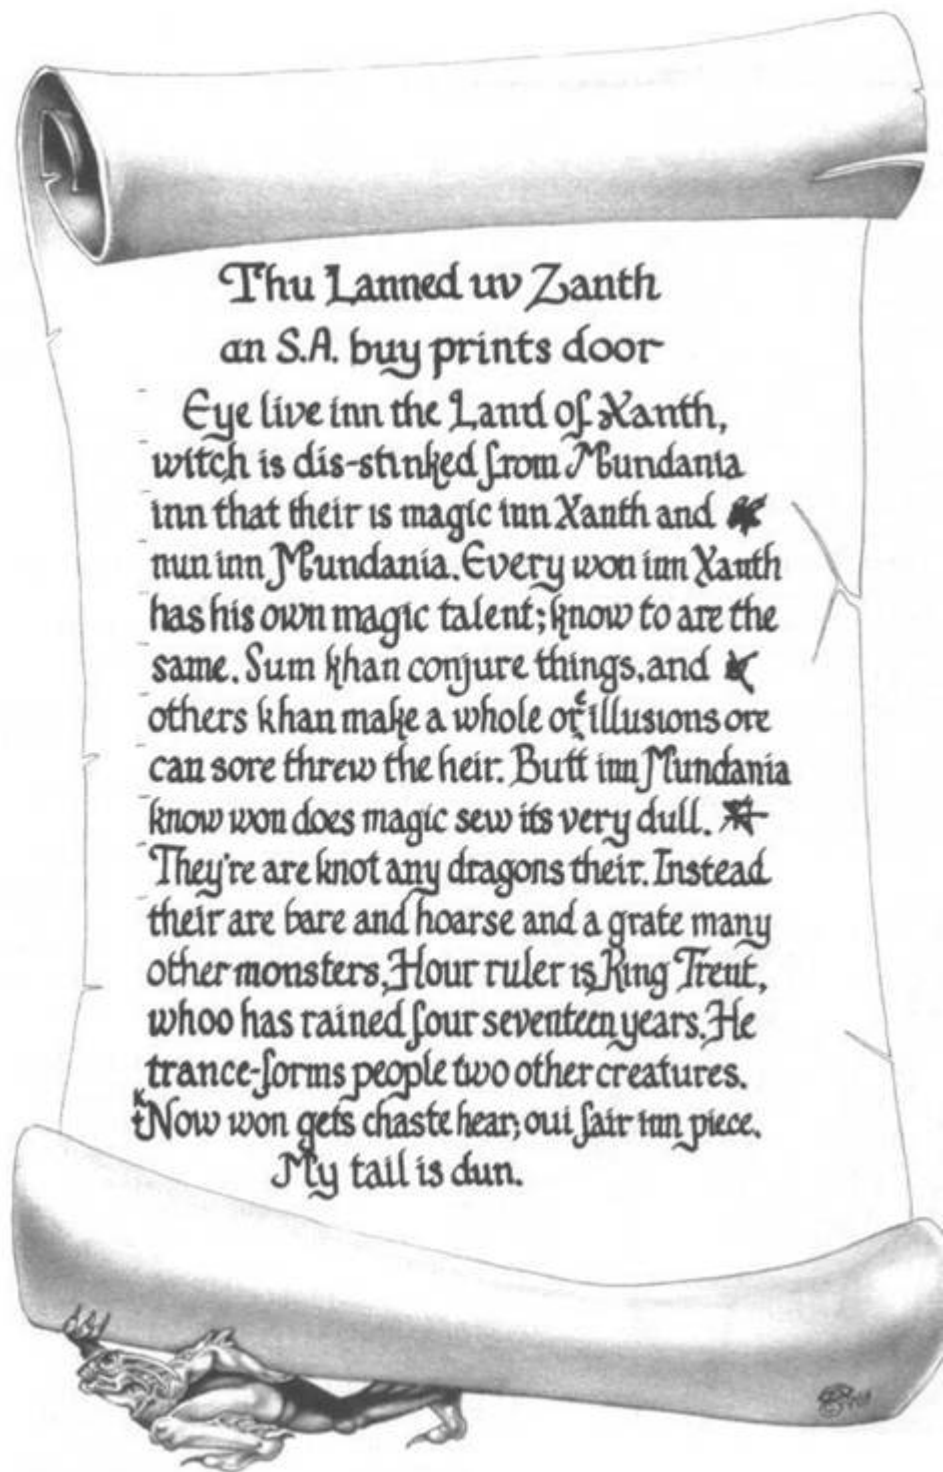 Thu Lanned uv Zanth
an S.A. buy prints door
Eye live inn the Land of Xanth,
witch is dis-stinked from Mundania
inn that their is magic inn Xanth and
nun inn Mundania. Every won inn Xanth
has his own magic talent; know to are the
same. Sum khan conjure things, and
others khan make a whole of illusions ore
can sore threw the heir. Butt inn Mundania
know won does magic sew its very dull.
They're are knot any dragons their. Instead
their are bare and hoarse and a grate many
other monsters. Hour ruler is King Trent,
whoo has rained four seventeen years. He
trance-forms people two other creatures.
Now won gets chaste hear; oui fair inn piece.
My tail is dun.